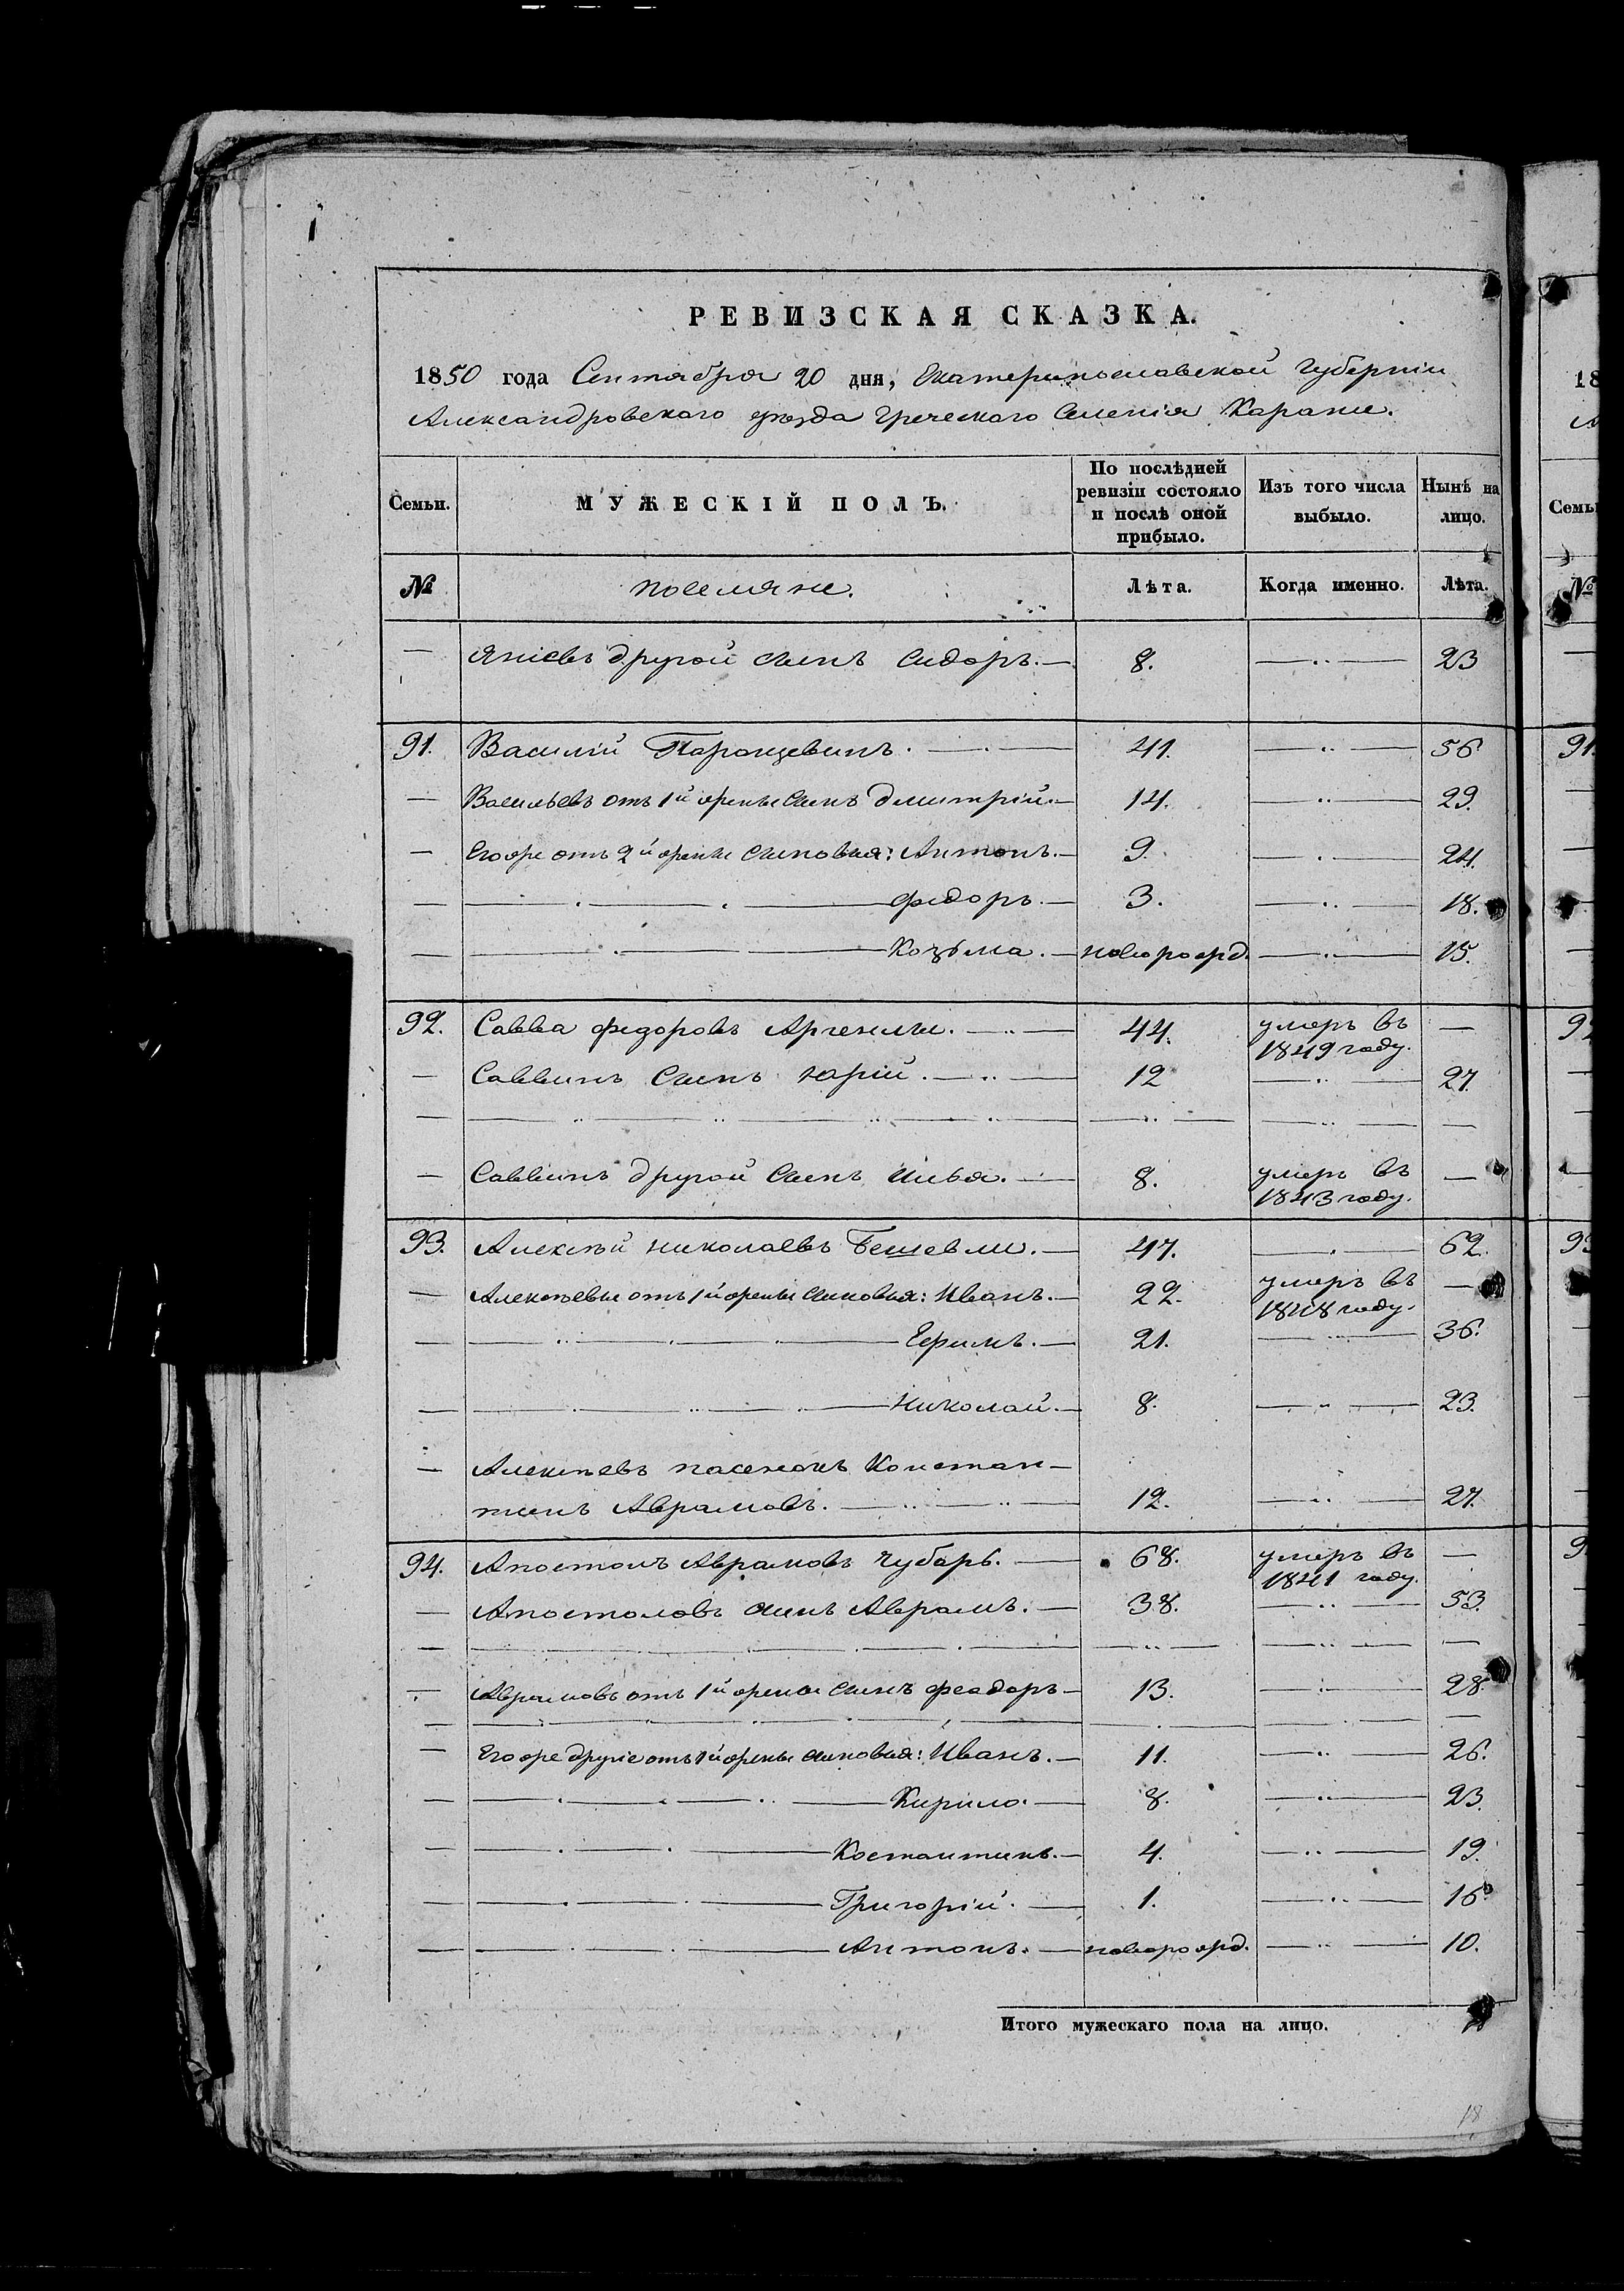 РЕВИЗСКАЯ СКАЗКА.
1850 года Сентября 20 дня, Екатеринославской Губерніи
Александровскаго уѣзда Греческаго Селенія Карани.
Семьи. МУЖЕСКІЙ ПОЛЪ. По послѣдней ревизіи состояло и послѣ оной прибыло. Изъ того числа выбыло. Нынѣ на лицо.
№ поселяне. Лѣта. Когда именно. Лѣта.
— Яніевъ другой сынъ Сидоръ. — 8. — 23
91. Василій — 41. — 56
— Васильевъ отъ 1й жены сынъ Дмитрій. — 14. — 29.
— Его же отъ 2й жены сыновья: Антонъ. — 9. — 24.
— Федоръ. — 3. — 18.
— Козьма. — новорожд. — 15.
92. Савва Федоровъ — 44. умеръ въ 1849 году. —
— Саввинъ сынъ Юрій. — 12 — 27.
— Саввинъ другой сынъ Илья. — 8. умеръ въ 1843 году. —
93. Алексѣй Николаевъ Бешевли. — 47. — 62.
— Алексѣевы отъ 1й жены сыновья: Иванъ. — 22. умеръ въ 1848 году. —
— — 21. — 36.
— Николай. — 8. — 23.
— Алексѣевъ пасенокъ Констан-
тинъ Аврамовъ. — 12. — 27.
94. Апостолъ Аврамовъ Чубарь. — 68. умеръ въ 1841 году. —
— Апостоловъ сынъ Аврамъ. — 38. — 53.
— Аврамовъ отъ 1й жены сынъ Феодоръ — 13. — 28.
— Его же другіе отъ 1й жены сыновья: Иванъ. — 11. — 26.
— Кирило. — 8. — 23.
— Костантинъ. — 4. — 19.
— Григорій. — 1. — 16.
— Антонъ. — новорожд. — 10.
Итого мужескаго пола на лицо.
18